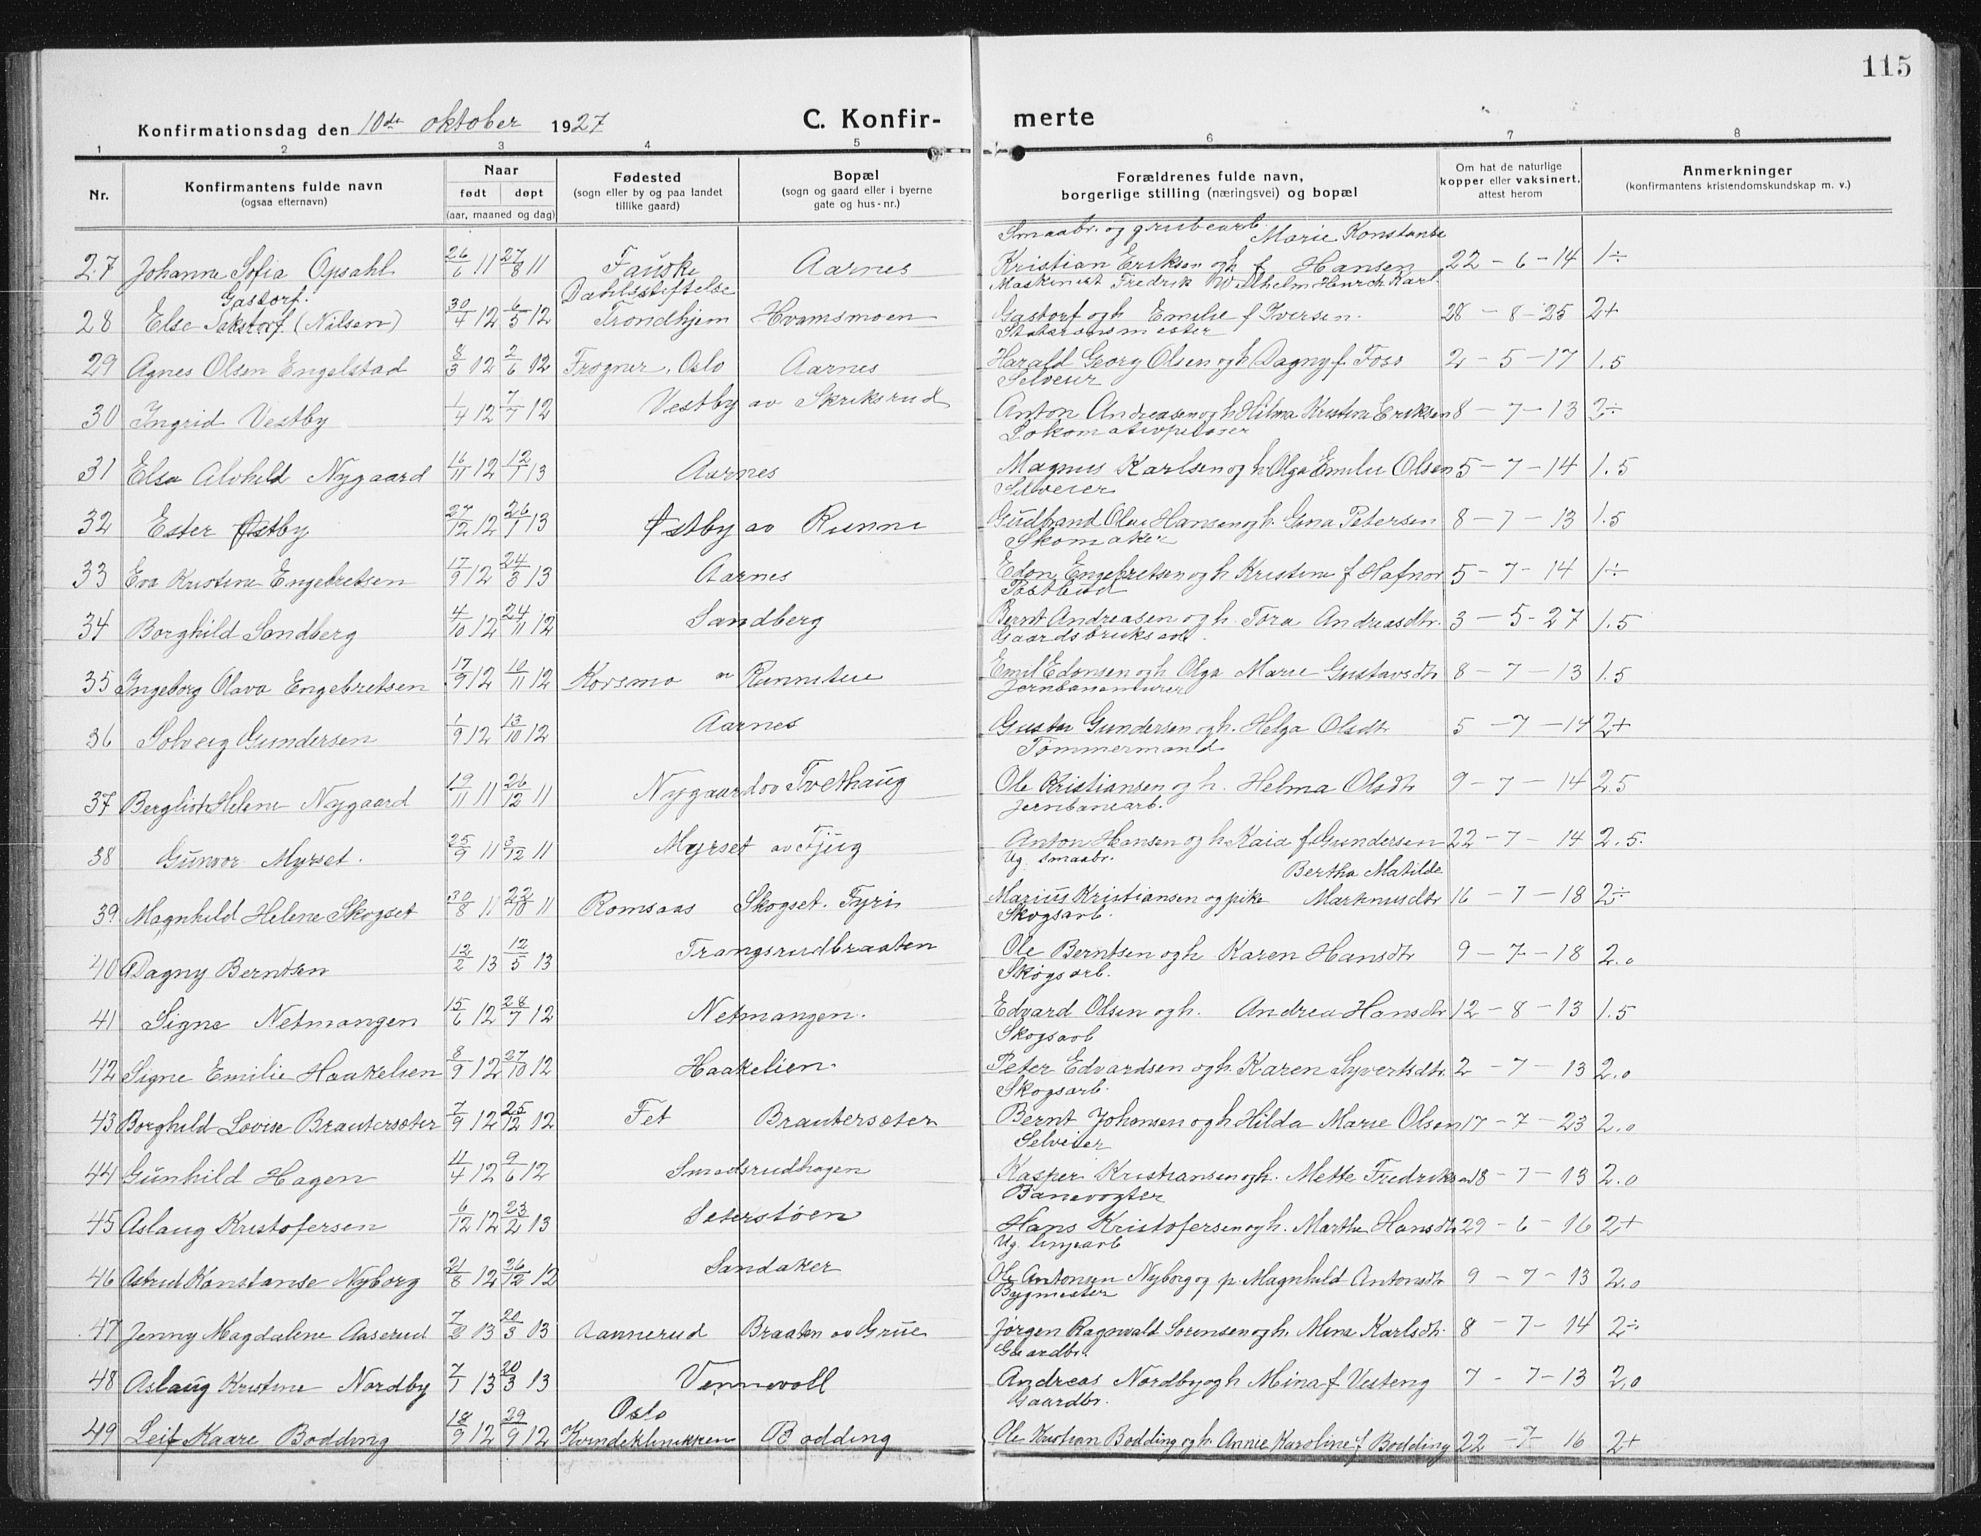 115
Konfirmationsdag den 10de oktober 1927 C. Konfir- merte
1 2 3 4 5 6 7 8
Nr. Konfirmantens fulde navn (ogsaa efternavn) Naar født døpt (aar, maaned og dag) Fødested (sogn eller by og paa landet tillike gaard) Bopæl (sogn og gaard eller i byerne gate og hus-nr.) Forældrenes fulde navn, borgerlige stilling (næringsvei) og bopæl Om hat de naturlige kopper eller vaksinert, attest herom Anmerkninger (konfirmantens kristendomskundskap m. v.)
Smaabr. og grubearb. Marie Konstanse
27 Johanne Sofia Opsahl 26/6 11 27/8 11 Fauske Aarnes Kristian Eriksen og h. f. Hansen 22-6-14 1÷
Gastorf. Dahlsstiftelse Maskinist Fredrik Wilhelm Henrch Karl
28 Else Takstorf (Nilsen) 30/4 12 6/5 12 Trondhjem Hvamsmoen Gastorf og h Emilie f Iversen. 28-8-25 2+
Stationsmester
29 Agnes Olsen Engelstad 8/3 12 2/6 12 Frogner, Oslo Aarnes Harald Georg Olsen og h Dagny f. Foss 2-5-17 1.5
Selveier
30 Ingrid Vestby 1/4 12 7/7 12 Vestby av Skriksrud Anton Andreasen og h Hilma Kristina Eriksen 8-7-13 2÷
Lokomotivpudser
31 Elsa Alvhild Nygaard 16/11 12 12/1 13 Aarnes Magnus Karlsen og h Olga Emilie Olsen 5-7-14 1.5
Selveier
32 Ester Østby 27/12 12 26/1 13 Østby av Runni Gudbrand Olav Hansen og h. Gina Petersen 8-7-13 1.5
Skomaker
33 Eva Kristine Engebretsen 17/9 12 24/3 13 Aarnes Edon Engebretsen og h Kristine f Hafnor 5-7-14 1÷
Postbud
34 Borghild Sandberg 4/10 12 24/11 12 Sandberg Bernt Andreasen og h. Tora Andreasdtr. 3-5-27 1.5
Gaardsbruksarb.
35 Ingeborg Olava Engebretsen 17/9 12 10/11 12 Korsmo av Runnitue Emil Edonsen og h Olga Marie Gustavsdtr 8-7-13 1.5
Jernbanemurer
36 Solveig Gundersen 1/9 12 13/10 12 Aarnes Gustav Gundersen og h. Helga Olsdtr 5-7-14 2+
Tømmermand
37 Bergliot Helene Nygaard 19/11 11 26/12 11 Nygaard av Tvethaug Ole Kristiansen og h. Helma Olsdtr 9-7-14 2.5
Jernbanearb.
38 Gunvor Myrset. 25/9 11 3/12 11 Myrset av Fjug Anton Hansen og h Kaia f Gundersen 22-7-14 2.5.
Ug. smaabr. Bertha Matilde
39 Magnhild Helene Skogset 30/8 11 22/10 11 Romsaas Skogset. Fyri Marius Kristiansen og pike Martinusdtr 16-7-18 2÷
Skogsarb.
40 Dagny Berntsen 12/2 13 12/5 13 Trangsrudbraaten Ole Berntsen og h Karen Hansdtr 9-7-18 2.0
Skogsarb.
41 Signe Netmangen 15/6 12 28/7 12 Netmangen. Edvard Olsen og h. Andrea Hansdtr 12-8-13 1.5
Skogsarb
42 Signe Emilie Haakelsen 8/9 12 27/10 12 Haakelien. Peter Edvardsen og h. Karen Syvertsdtr 2-7-13 2.0
Skogsarb.
43 Borghild Lovise Brautersæter 7/9 12 25/12 12 Fet Brautersæter Bernt Johansen og h Hilda Marie Olsen 17-7-23 2.0
Selveier
44 Gunhild Hagen 11/4 12 9/6 12 Smedsrudhagen Kasper Kristiansen og h. Mette Fredriksen 18-7-13 2.0
Banevogter
45 Aslaug Kristofersen 6/12 12 23/2 13 Seterstøen Hans Kristofersen og h. Marthe Hansdtr 29-6-16 2+
Ug. linjearb
46 Astrid Konstanse Nyborg 21/8 12 26/12 12 Sandaker Ole Antonsen Nyborg og p. Magnhild Antonsdtr 9-7-13 2.0
Bygmester
47 Jenny Magdalene Aaserud 7/2 13 20/3 13 Aannerud Braaten av Grue Jørgen Ragnvald Sørensen og h. Mina Karlsdtr. 8-7-14 2÷
Gaardbr.
48 Aslaug Kristine Nordby 7/1 13 20/3 13 Vennevoll Andreas Nordby og h Mina f Vesteng 7-7-13 2,0
Oslo Gaardbr.
49 Leif Kaare Bodding 18/9 12 29/9 12 Kvindeklinikken Bodding Ole Kristian Bodding og h. Annie Karoline f Bodding 22-7-16 2+